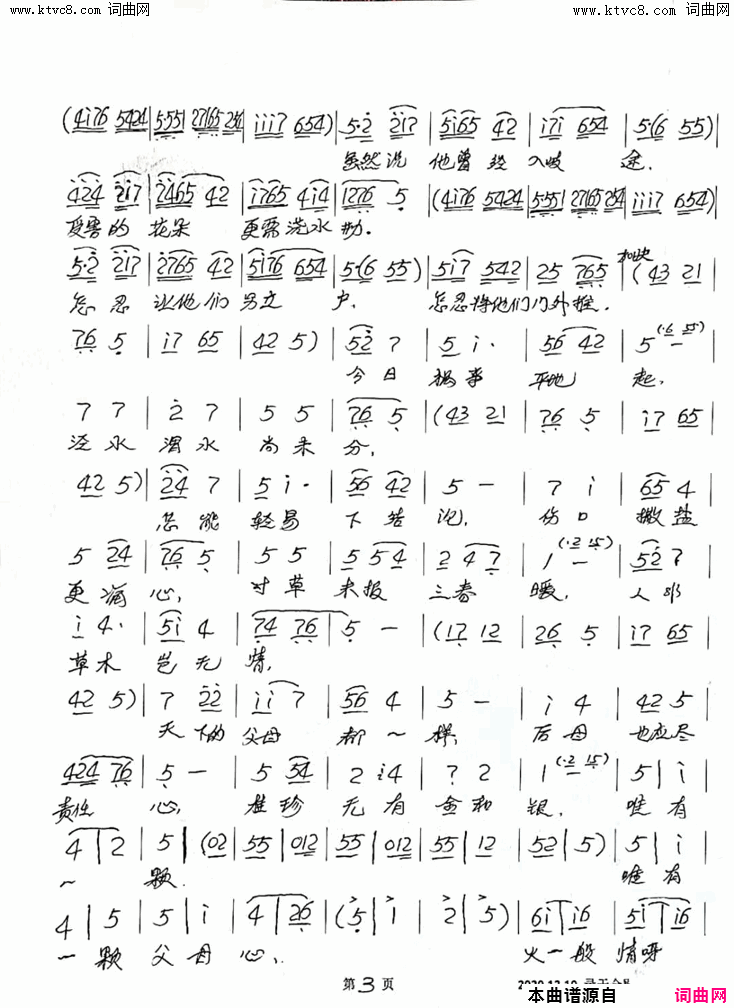 www.ktvc8.com 词曲网 www.ktvc8.com 词曲网
(4i76 5424 | 5·551 2765 | iii7 654) | 5·2 217 | 5i65 42 | i7i 654 | 5·(6 55) |
虽然说 他曾经 入歧 途.
424 2i7 | 2465 42 | i765 4i4 | 1276 5 | (4i76 5424 | 5·551 2765 254 | iii7 654) |
受害的 花朵 更需浇水
5·2 217 | 2765 42 | 5i76 654 | 5·(6 55) | 5i7 542 | 25 765 | (43 21 |
怎忍 让他们 另立 户. 怎忍将他们门外推.
76 5 | i7 65 | 42 5) | 52 7 | 5 i· | 56 42 | 5 — |
今日 祸事 平地 起.
7 7 | 2 7 | 5 5 | 76 5 | (43 21 | 76 5 | i7 65 |
泾水 浑水 尚未 分.
42 5) | 24 7 | 5 i· | 56 42 | 5 — | 7 i | 65 4 |
怎能 轻易 下结 论. 伤口 撒盐
5 24 | 76 5 | 5 5 | 5 54 | 2 47 | 1 — | 52 7 |
更痛 心. 寸草 未报 三春 暖. 人非
i 4· | 5i 4 | 74 76 | 5 — | (17 12 | 26 5 | i7 65 |
草木 岂无 情.
42 5) | 7 22 | ii 7 | 56 4 | 5 — | i 4 | 42 5 |
天下的 父母 都一 样. 后母 也应尽
424 76 | 5 — | 5 54 | 2 i4 | 7 2 | 1 — | 5 | i |
责任 心. 桂珍 无有 金和 银. 唯有
4 | 2 | 5 | (02 | 55 | 012 | 55 | 012 | 55 | 12 | 52 | 5) | 5 | i |
一 颗. 唯有
4 | 5 | 5 | i | 4 | 26 | (5 | 1 | 2 | 5) | 6i | i6 | 5i | i6 |
一颗父母心. 火一般 情呀
第 3 页
本曲谱源自 词曲网